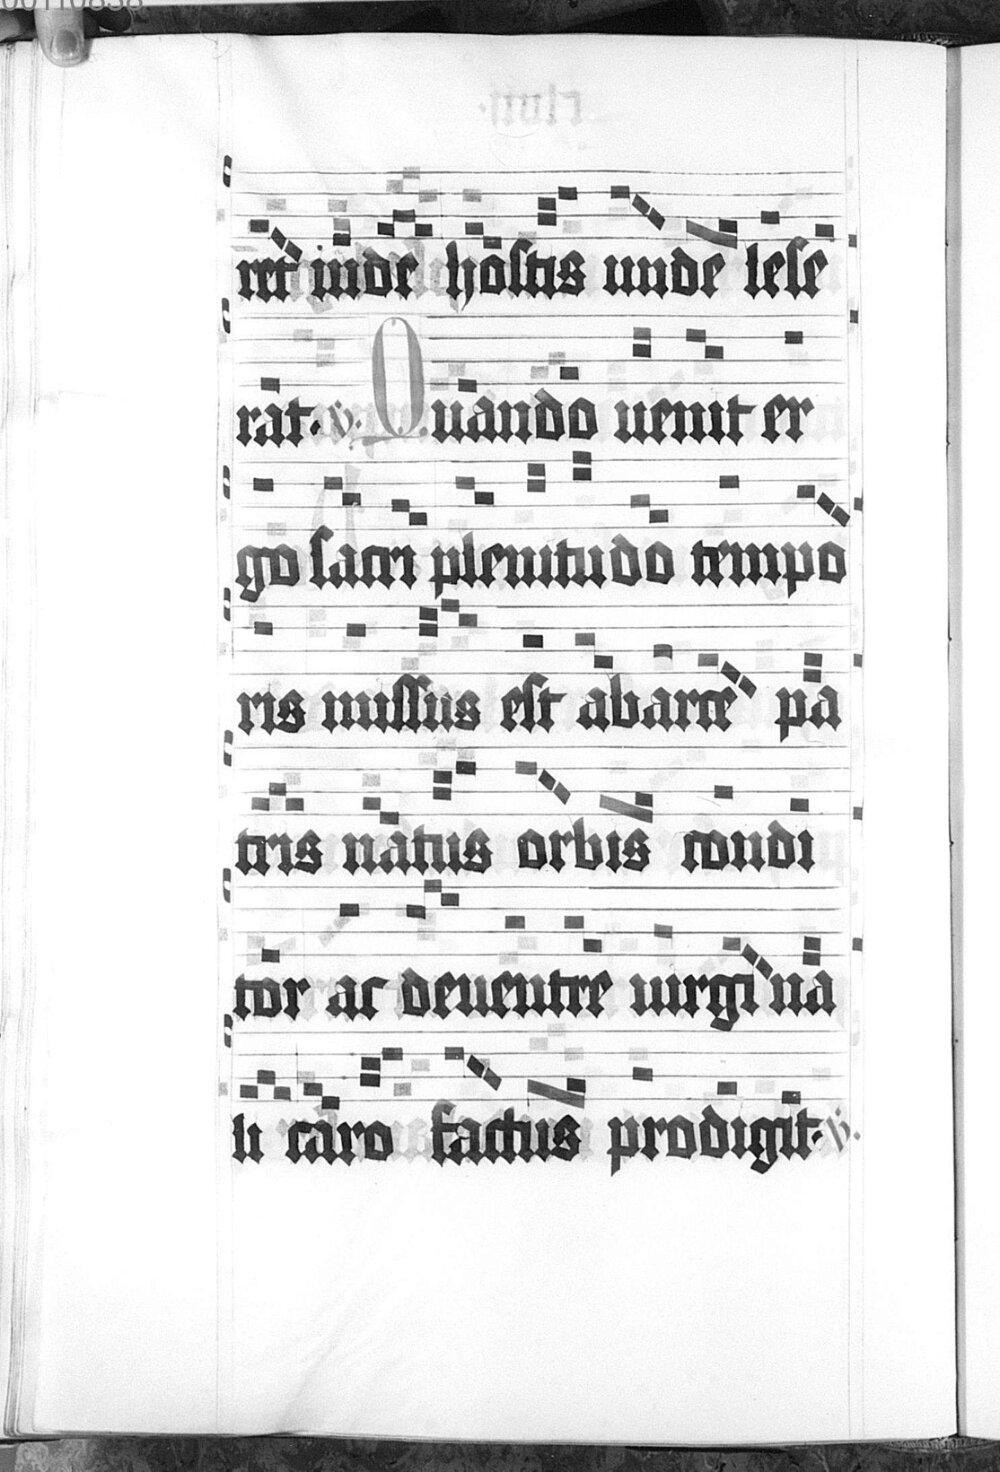 ret inde hostis unde lese
rat. v. Quando uenit er
go sacri plenitudo tempo
ris missus est abarce pa
tris natus orbis condi
tor ac deuentre uirgina
li caro factus prodigit. v.